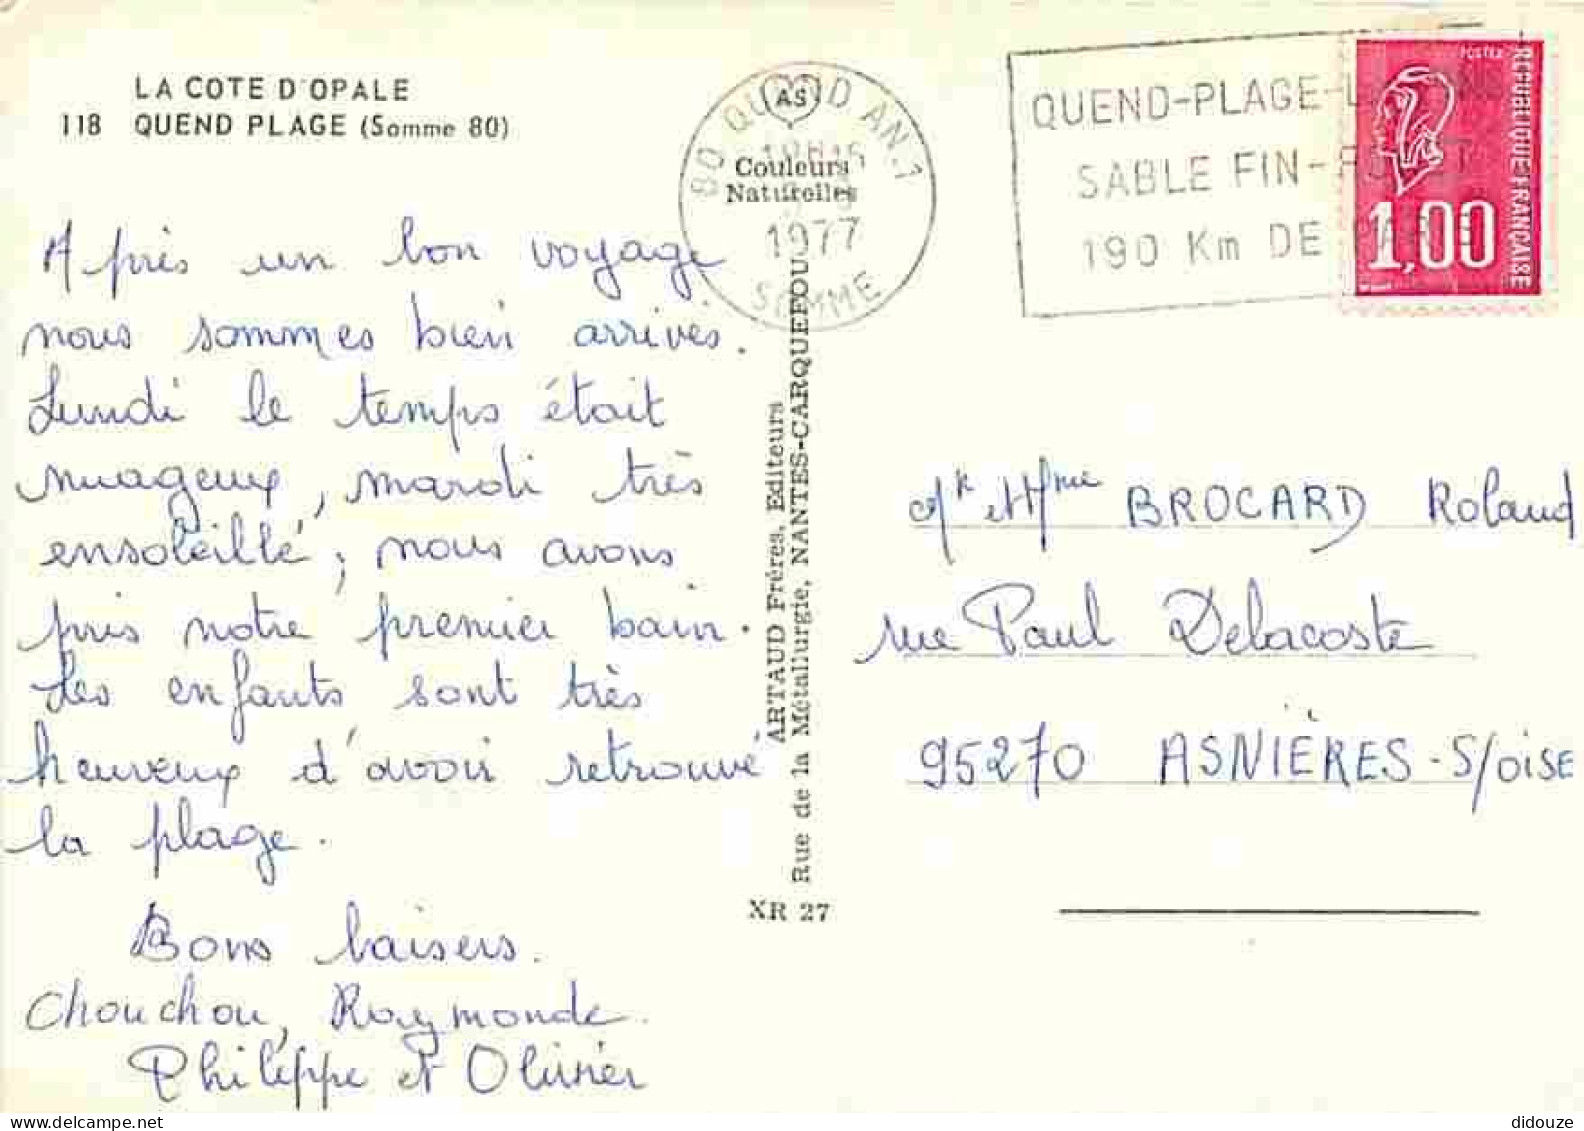 LA COTE D'OPALE
118 QUEND PLAGE (Somme 80)
AS
Couleurs
Naturelles
80 QUEND AN.1
1977
SOMME
QUEND-PLAGE-
SABLE FIN-
190 Km DE
POSTES
REPUBLIQUE FRANÇAISE
1,00
Après un bon voyage
nous sommes bien arrivés.
Lundi le temps était
nuageux, mardi très
ensoleillé; nous avons
pris notre premier bain.
Les enfants sont très
heureux d'avoir retrouvé
la plage.
Bons baisers.
Chouchou, Raymonde
Philippe et Olivier
ARTAUD Frères, Editeurs
Rue de la Métallurgie, NANTES-CARQUEFOU
XR 27
Mr et Mme BROCARD Roland
rue Paul Delacoste
95270 ASNIÈRES-S/OISE
didouze